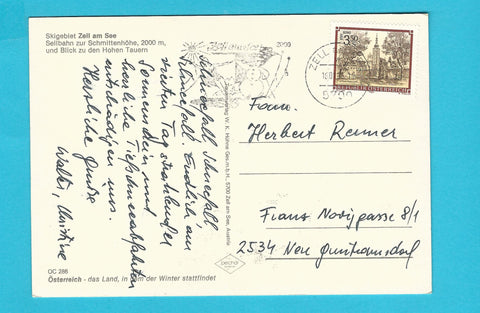 Skigebiet Zell am See
Seilbahn zur Schmittenhöhe, 2000 m,
und Blick zu den Hohen Tauern
Schneefall, Schneefall,
Schneefall. Endlich am
vierten Tag strahlender
Sonnenschein und
herrliche Tiefschneeabfahrten
entschädigen uns.
Herzliche Grüße
Walter, Christine
OC 286
Österreich - das Land, in dem der Winter stattfindet
W. K. Höhne Ges.m.b.H., 5700 Zell am See, Austria
5700
ZELL
5700
3.50
REPUBLIK ÖSTERREICH
Fam.
Herbert Renner
Franz 8/1
2534